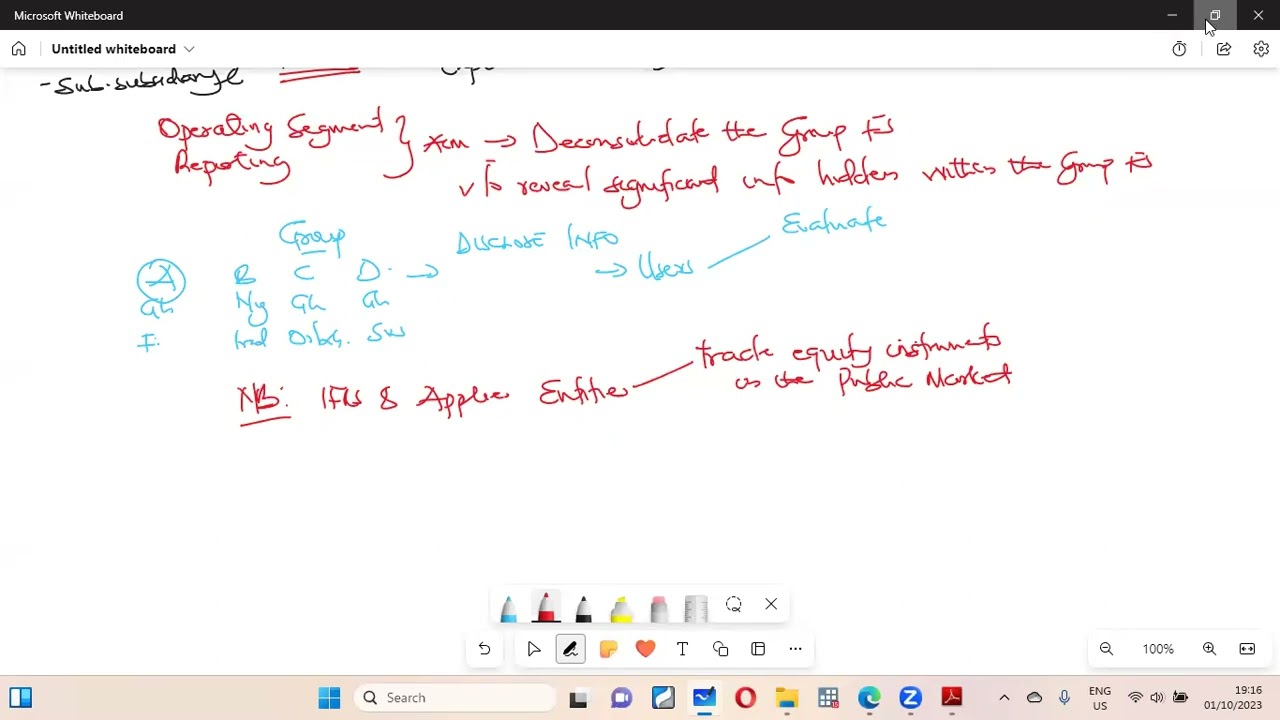 Microsoft Whiteboard
Untitled whiteboard
- Sub-subsidiary
Operating Segment
Reporting
→ Deconsolidate the Group FS
✓ To reveal significant info hidden within the Group FS
Group
DISCLOSE INFO
Evaluate
A B C D → → Users
Gh Ng Gh Gh
NB: IFRS 8 Applies Entities
trade equity instruments
on the Public Market
100%
Search
ENG
US
19:16
01/10/2023